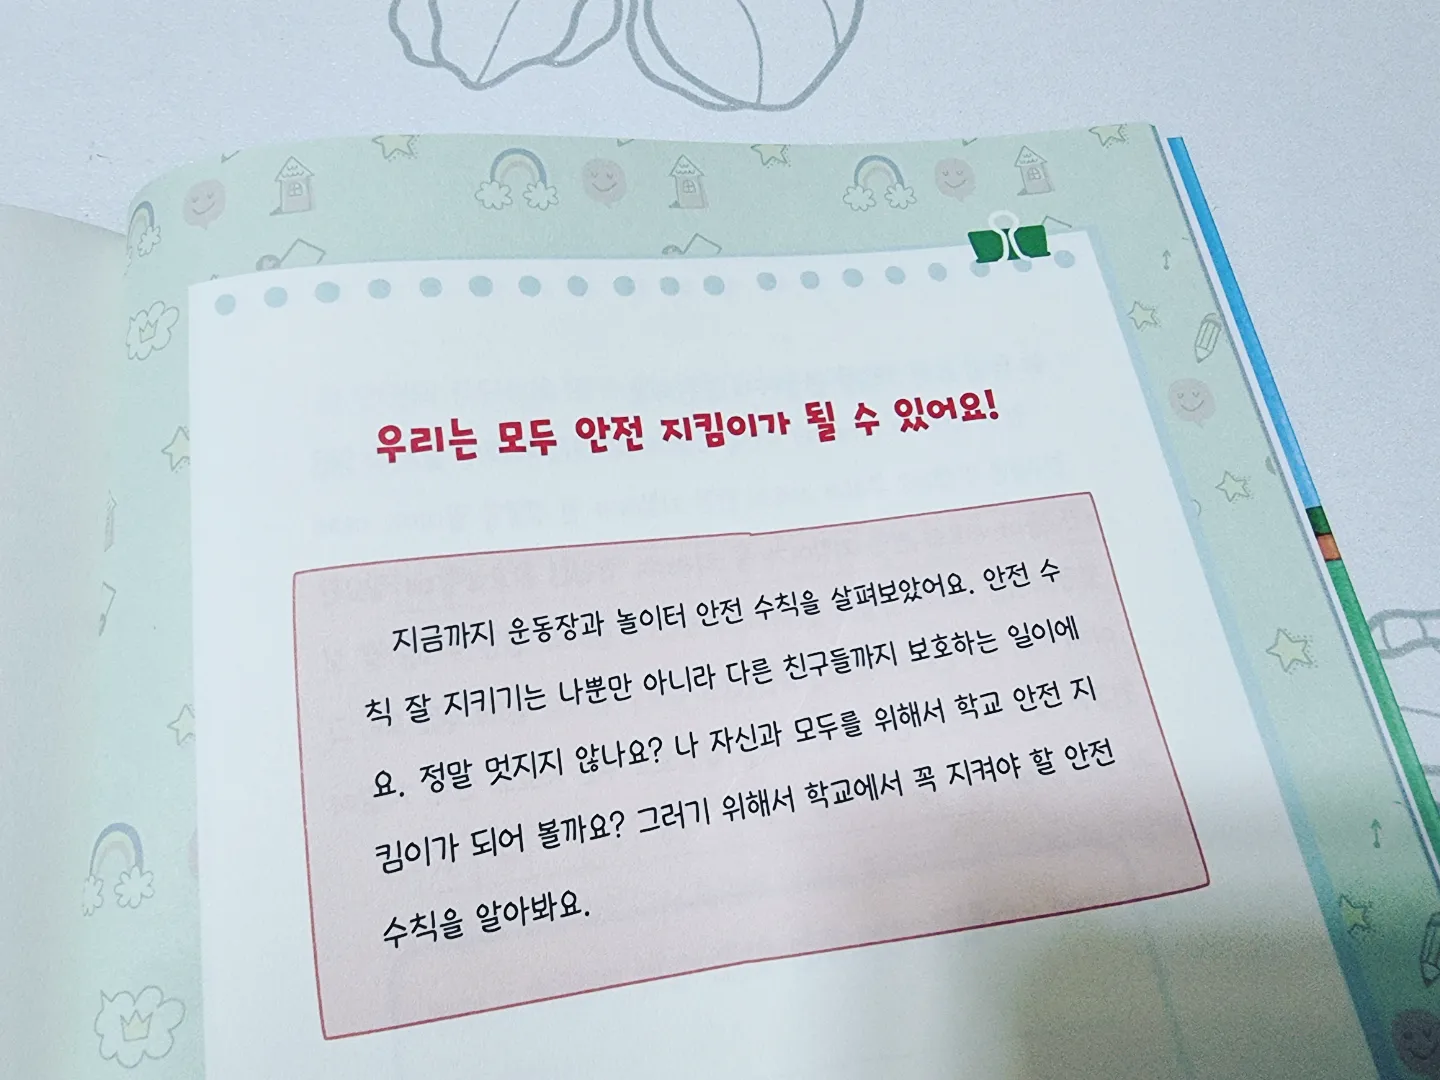 우리는 모두 안전 지킴이가 될 수 있어요!
지금까지 운동장과 놀이터 안전 수칙을 살펴보았어요. 안전 수
칙 잘 지키기는 나뿐만 아니라 다른 친구들까지 보호하는 일이에
요. 정말 멋지지 않나요? 나 자신과 모두를 위해서 학교 안전 지
킴이가 되어 볼까요? 그러기 위해서 학교에서 꼭 지켜야 할 안전
수칙을 알아봐요.